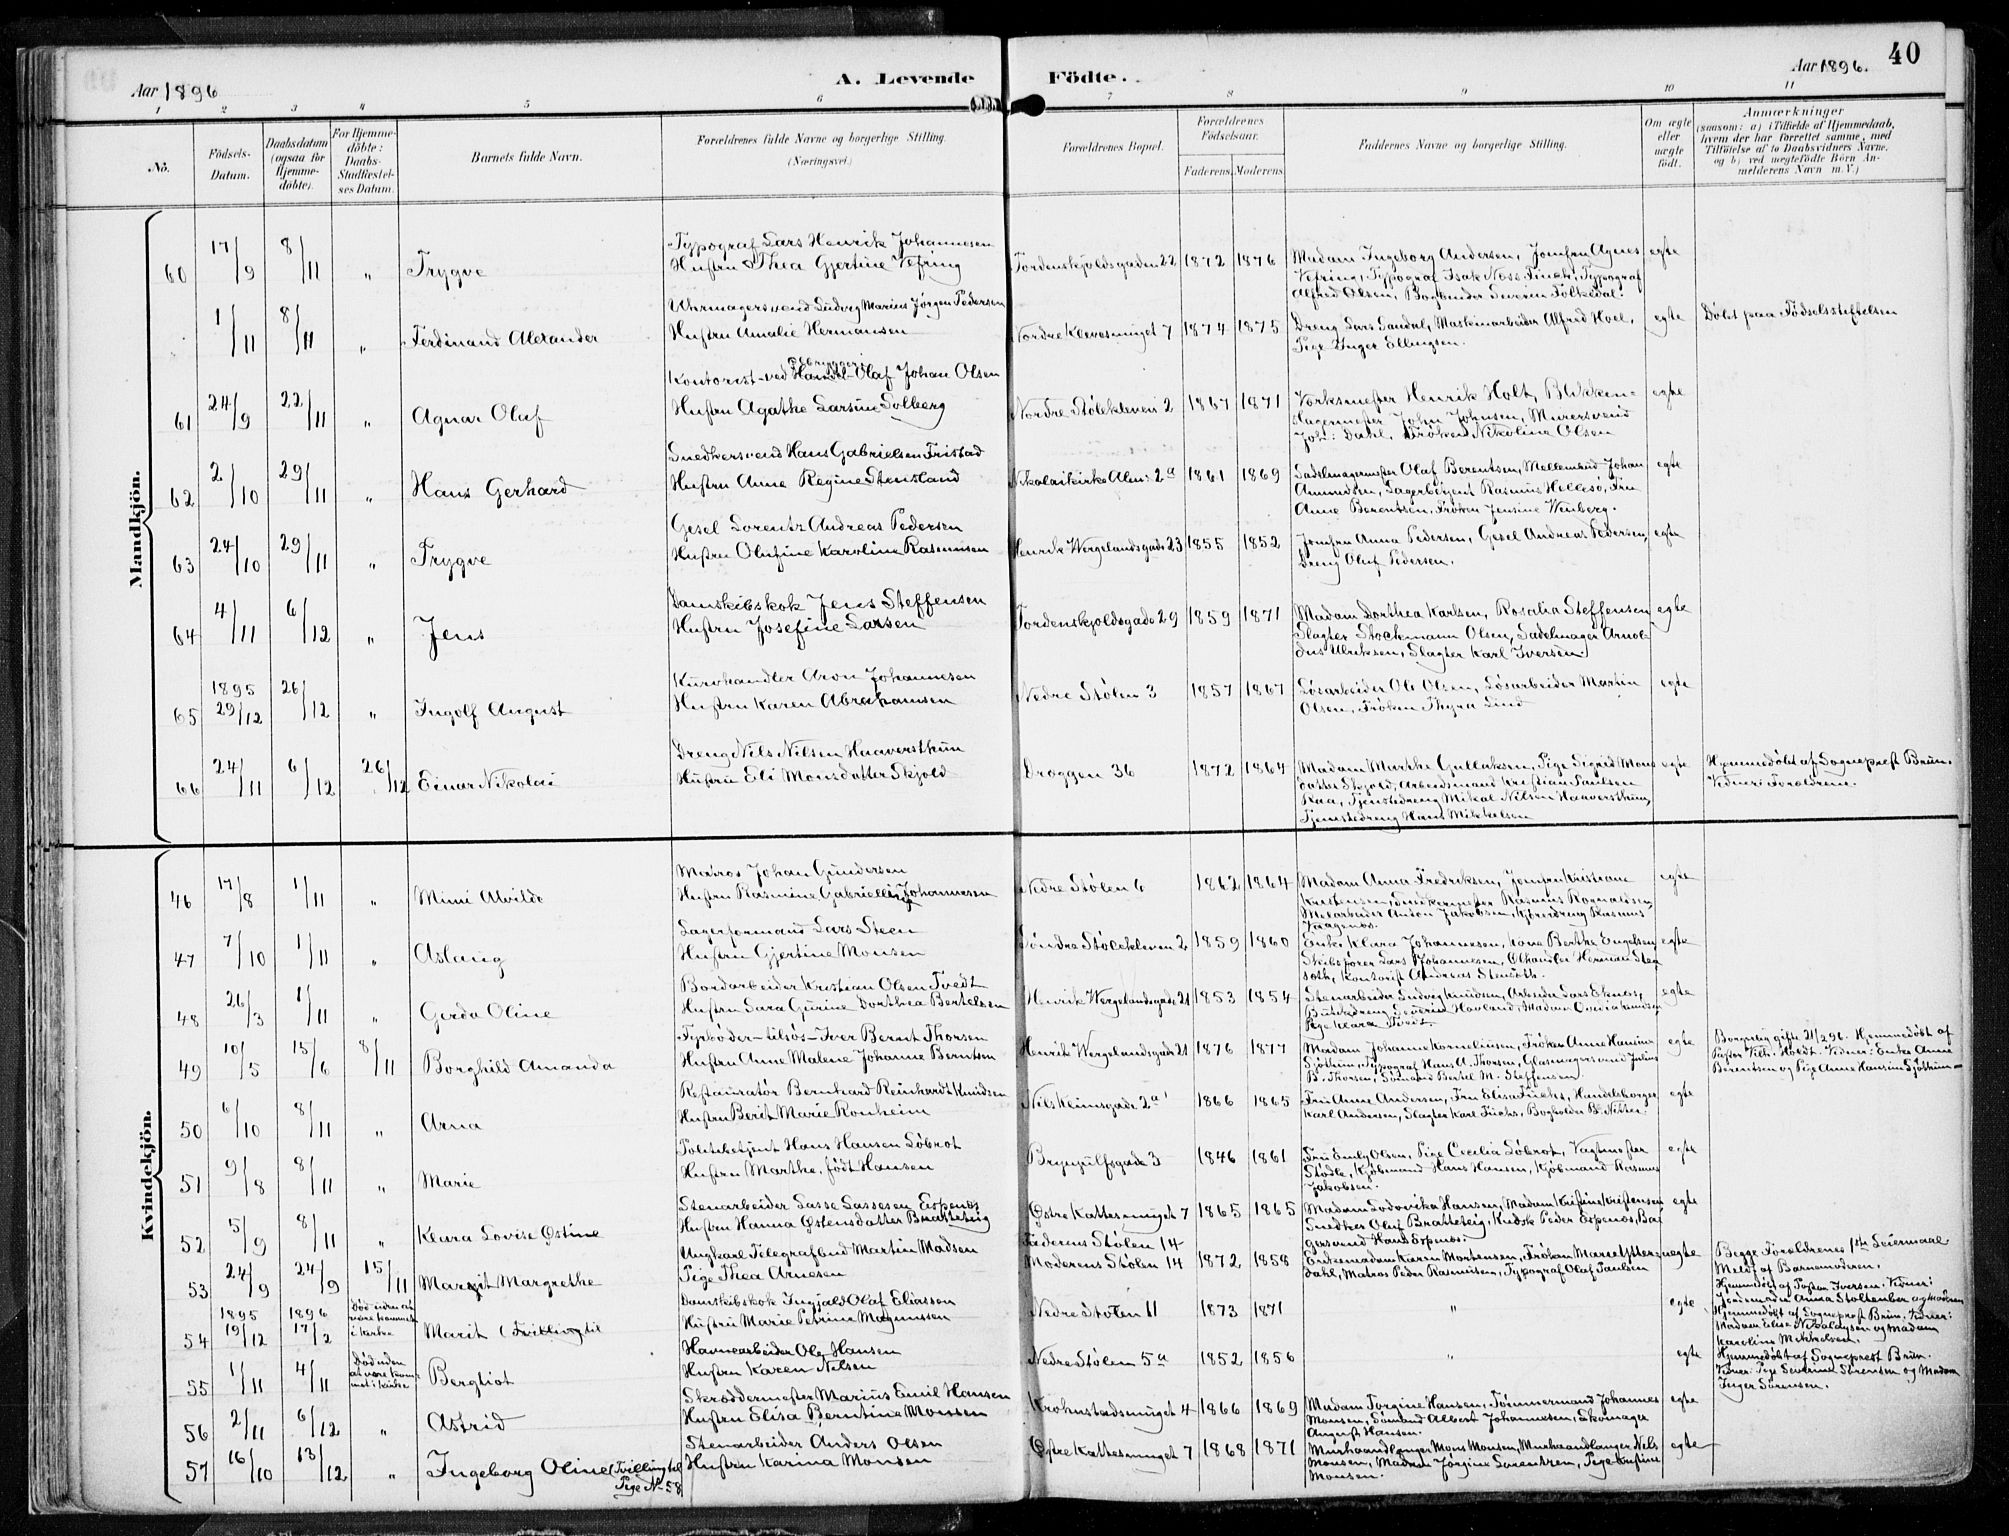 40
Aar 1896
A. Levende Födte.
Aar 1896.
1 2 3 4 5 6 7 8 9 10 11
No.
Födsels-
Datum.
Daabsdatum
(ogsaa for
Hjemme-
döbte).
For Hjemme-
döbte:
Daabs-
Stadfæstel-
ses Datum.
Barnets fulde Navn.
Forældrenes fulde Navne og borgerlige Stilling.
(Næringsvei.)
Forældrenes Bopæl.
Forældrenes
Födselsaar.
Faderens. Moderens.
Faddernes Navne og borgerlige Stilling.
Om ægte
eller
uægte
födt.
Anmærkninger
(saasom: a) i Tilfælde af Hjemmedaab,
hvem der har forrettet samme, med
Tilföielse af to Daabsvidners Navne,
og b) ved uægtefödte Börn An-
melderens Navn m. V.)
Mandkjön.
60 17/9 8/11 " Trygve
Typograf Lars Henrik Johannesen
Hustru Thea Gjertine Vefring
Tordenskjoldsgaden 22 1872 1876
Madam Ingeborg Andersen, Jomfru Agnes
Vefring, Typograf Isak Ness Finch, Typograf
Alfred Olsen, Bogbinder Severin Folkedal.
egte
1/11 8/11 " Ferdinand Alexander
Uhrmagersvend Ludvig Marius Jørgen Pedersen
Hustru Amalie Hermansen
Nordre Klevesmuget 7 1874 1875
Dreng Lars Sandal, Maskinarbeider Alfred Hoel,
Pige Inger Ellingsen.
egte
Døbt paa Fødselsstiftelsen
61 24/9 22/11 " Agnar Oluf
Kontorist ved Olaf Johan Olsen
Hustru Agathe Larsine Solberg
Nordre Stølekleven 2 1867 1871
Værksmester Henrik Holt, Blikken-
slagermester John Johnsen, Murersvend
Joh: Dahl, Frøken Nikoline Olsen
egte
62 2/10 29/11 " Hans Gerhard
Snedkersvend Hans Gabrielsen Fristad
Hustru Anne Regine Stensland
Nikolaikirke Alm: 2a 1861 1869
Sadelmagermester Olaf Berentsen, Møllemand Johan
Amundsen, Lagerbetjent Rasmus Hellesø, Fru
Anne Berentsen, Frøken Jensine Wenberg.
egte
63 24/10 29/11 " Trygve
Gesel Lorentz Andreas Pedersen
Hustru Olufine Karoline Rasmussen
Henrik Wergelandsgade 23 1855 1852
Jomfru Anna Pedersen, Gesel Andreas Pedersen,
Dreng Oluf Pedersen.
egte
64 4/11 6/12 " Jens
Damskibskok Jens Steffensen
Hustru Josefine Larsen
Tordenskjoldsgade 29 1859 1871
Madam Dorthea Karlsen, Rosalia Steffensen
Slagter Stockmann Olsen, Sadelmager Arnol-
dus Ulriksen, Slagter Karl Iversen.
egte
65 1895 29/12 26/12 " Ingolf August
Kurvhandler Aron Johannesen
Hustru Karen Abrahamsen
Nedre Stølen 3 1857 1867
Løsarbeider Ole Olsen, Løsarbeider Martin
Olsen, Frøken Thyra Lind
egte
66 24/11 6/12 26/12 Einar Nikolai
Dreng Nils Nilsen Haaversthun
Hustru Eli Monsdatter Skjold
Dræggen 36 1872 1864
Madam Marthe Gullaksen, Pige Sigrid Mons
datter Skjold, Arbeidsmand Kristian Paulsen
Raa, Tjenestedreng Mikal Nilsen Haaversthun,
Tjenestedreng Hans Mikkelsen
egte
Hjemmedøbt af Sogneprest Brun.
Vidner: Forældrene.
Kvindekjön.
46 17/8 1/11 " Mimi Alvilde
Matros Johan Gundersen
Hustru Rasmine Gabrielle Johannesen
Nedre Stølen 6 1862 1864
Madam Anna Fredriksen, Jomfru Kristiane
Kristensen, Snedkermester Rasmus Rognaldsen,
Anton Jakobsen, Kjøredreng Rasmus
Vaagenes.
egte
47 7/10 1/11 " Aslaug
Lagerformand Lars Steen
Hustru Gjertine Monsen
Søndre Stølekleven 2 1859 1860
Enke Klara Johannesen, Kone Berthe Engelsen
Skibsfører Lars Johannesen, Ølhandler Herman Sten
seth, Kontorist Andreas Stenseth.
egte
48 26/3 1/11 " Gerda Oline
Bordarbeider Kristian Olsen Tvedt
Hustru Sara Gurine Dorthea Bertelsen
Henrik Wergelandsgade 21 1853 1854
Stenarbeider Ludvig Knudsen, Arbeider Lars Eknes,
Butikdreng Severin Hovland, Madam Knudsen
Pige Klara Tvedt
egte
49 10/5 15/6 8/11 Borghild Amanda
Fyrbøder-tilsøs-Iver Bernt Thorsen
Hustru Anne Malene Johanne Berntsen
Henrik Wergelandsgade 21 1876 1877
Madam Johanne Korneliusen, Frøken Anne Hansine
Sjøthun, Typograf Hans A. Thorsen, Glasmagersvend Julius
B. Thorsen, Sømand Bertel M. Steffensen
egte
Borgerlig gifte 21/2 96. Hjemmedøbt af
Pastor Vilh. Holdt. Vidner: Enke Anne
Berentsen og Pige Anne Hansine Sjøthun
50 6/10 8/11 " Arna
Restauratør Bernhard Reinhardt Knudsen
Hustru Berit Marie Ronheim
Nils Kleimsgade 2a 1866 1865
Fru Anne Andersen, Fru Elisa Fuchs, Handelsborger
Karl Andersen, Slagter Karl Fuchs, Bogholder B. Nilsen.
egte
51 9/8 8/11 " Marie
Politibetjent Hans Hansen Løbrot
Hustru Marthe, født Hansen
Brynjulfsgade 3 1846 1861
Fru Emly Olsen, Pige Cecilia Løbrot, Vagtmester
Stødle, Kjøbmand Hans Hansen, Kjøbmand Rasmus
Jakobsen.
egte
52 5/9 8/11 " Klara Lovise Østine
Stenarbeider Lasse Lassesen Espenes
Hustru Hanna Østensdatter Bratteteig
Østre Kattesmuget 7 1865 1865
Madam Lodovika Hansen, Madam Kristine Kristensen
Snedker Oluf Bratteteig, Kudsk Peder Espenes, Ba-
gersvend Hans Espenes.
egte
53 24/9 24/9 15/11 Margit Margrethe
Ungkarl Telegrafbud Martin Madsen
Pige Thea Arnesen
Faderens Stølen 14
Moderens Stølen 14 1872 1858
Enkemadam Karin Mortensen, Frøken Marie Ytter-
dahl, Matros Peder Rasmussen, Typograf Olaf Paulsen
uegte
Begge Forældrenes 1ste Leiermaal
Meldt af Barnemoderen.
Hjemmedøbt af Pastor Iversen. Vidner:
Jordemoder Anna Stoltenber og Moderen
54 1895 19/12 1896 17/2 Død uden at
være kommet
i kirke
Marit (Tvilling til
Damskibskok Ingjald Olaf Eliassen
Hustru Marie Petrine Magnussen
Nedre Stølen 11 1873 1871 " egte
Hjemmedøbt af Sogneprest Brun. Vidner:
Madam Elise Nikolaysen og Madam
Karoline Mikkelsen.
55 1/11 4/11 Død uden
at være kom-
met i kirke
Bergliot
Havnearbeider Ole Hansen
Hustru Karen Nilsen
Nedre Stølen 5a 1852 1856 " egte
Hjemmedøbt af Sogneprest Brun.
Vidner: Pige Severine Sørensen og Madam
Inger Sørensen.
56 2/11 6/12 " Astrid
Skræddermester Marius Emil Hansen
Hustru Elisa Berntine Monsen
Krohnstadsmuget 4 1866 1869
Madam Torgine Hansen, Tømmermand Johannes
Monsen, Sømand Albert Johannesen, Skomager
August Hansen.
egte
57 16/10 13/12 " Ingeborg Oline (Tvilling til
Pige No 58
Stenarbeider Anders Olsen
Hustru Karina Monsen
Østre Kattesmuget 7 1868 1871
Murhaandlanger Mons Monsen, Murhaandlanger Nils
Monsen, Madam Jørgine Lorentzen, Pige Kristine
Monsen.
egte